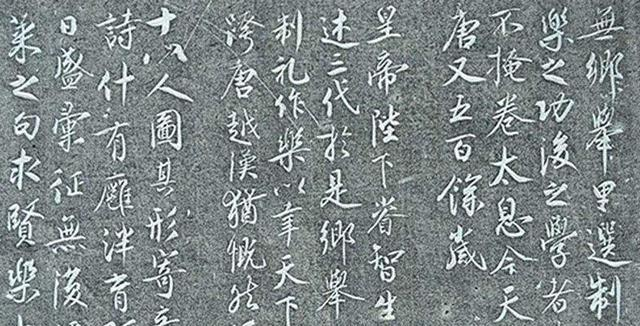 無鄉舉里選制
樂之功後之學者
不掩卷太息今天
唐又五百餘歲
皇帝陛下睿智生
述三代於是鄉舉
制礼作樂以幸天下
跨唐越漢猶慨然
十八人圖其形寄
詩什有廱泮育
日盛彙征無復
萊之句求賢樂